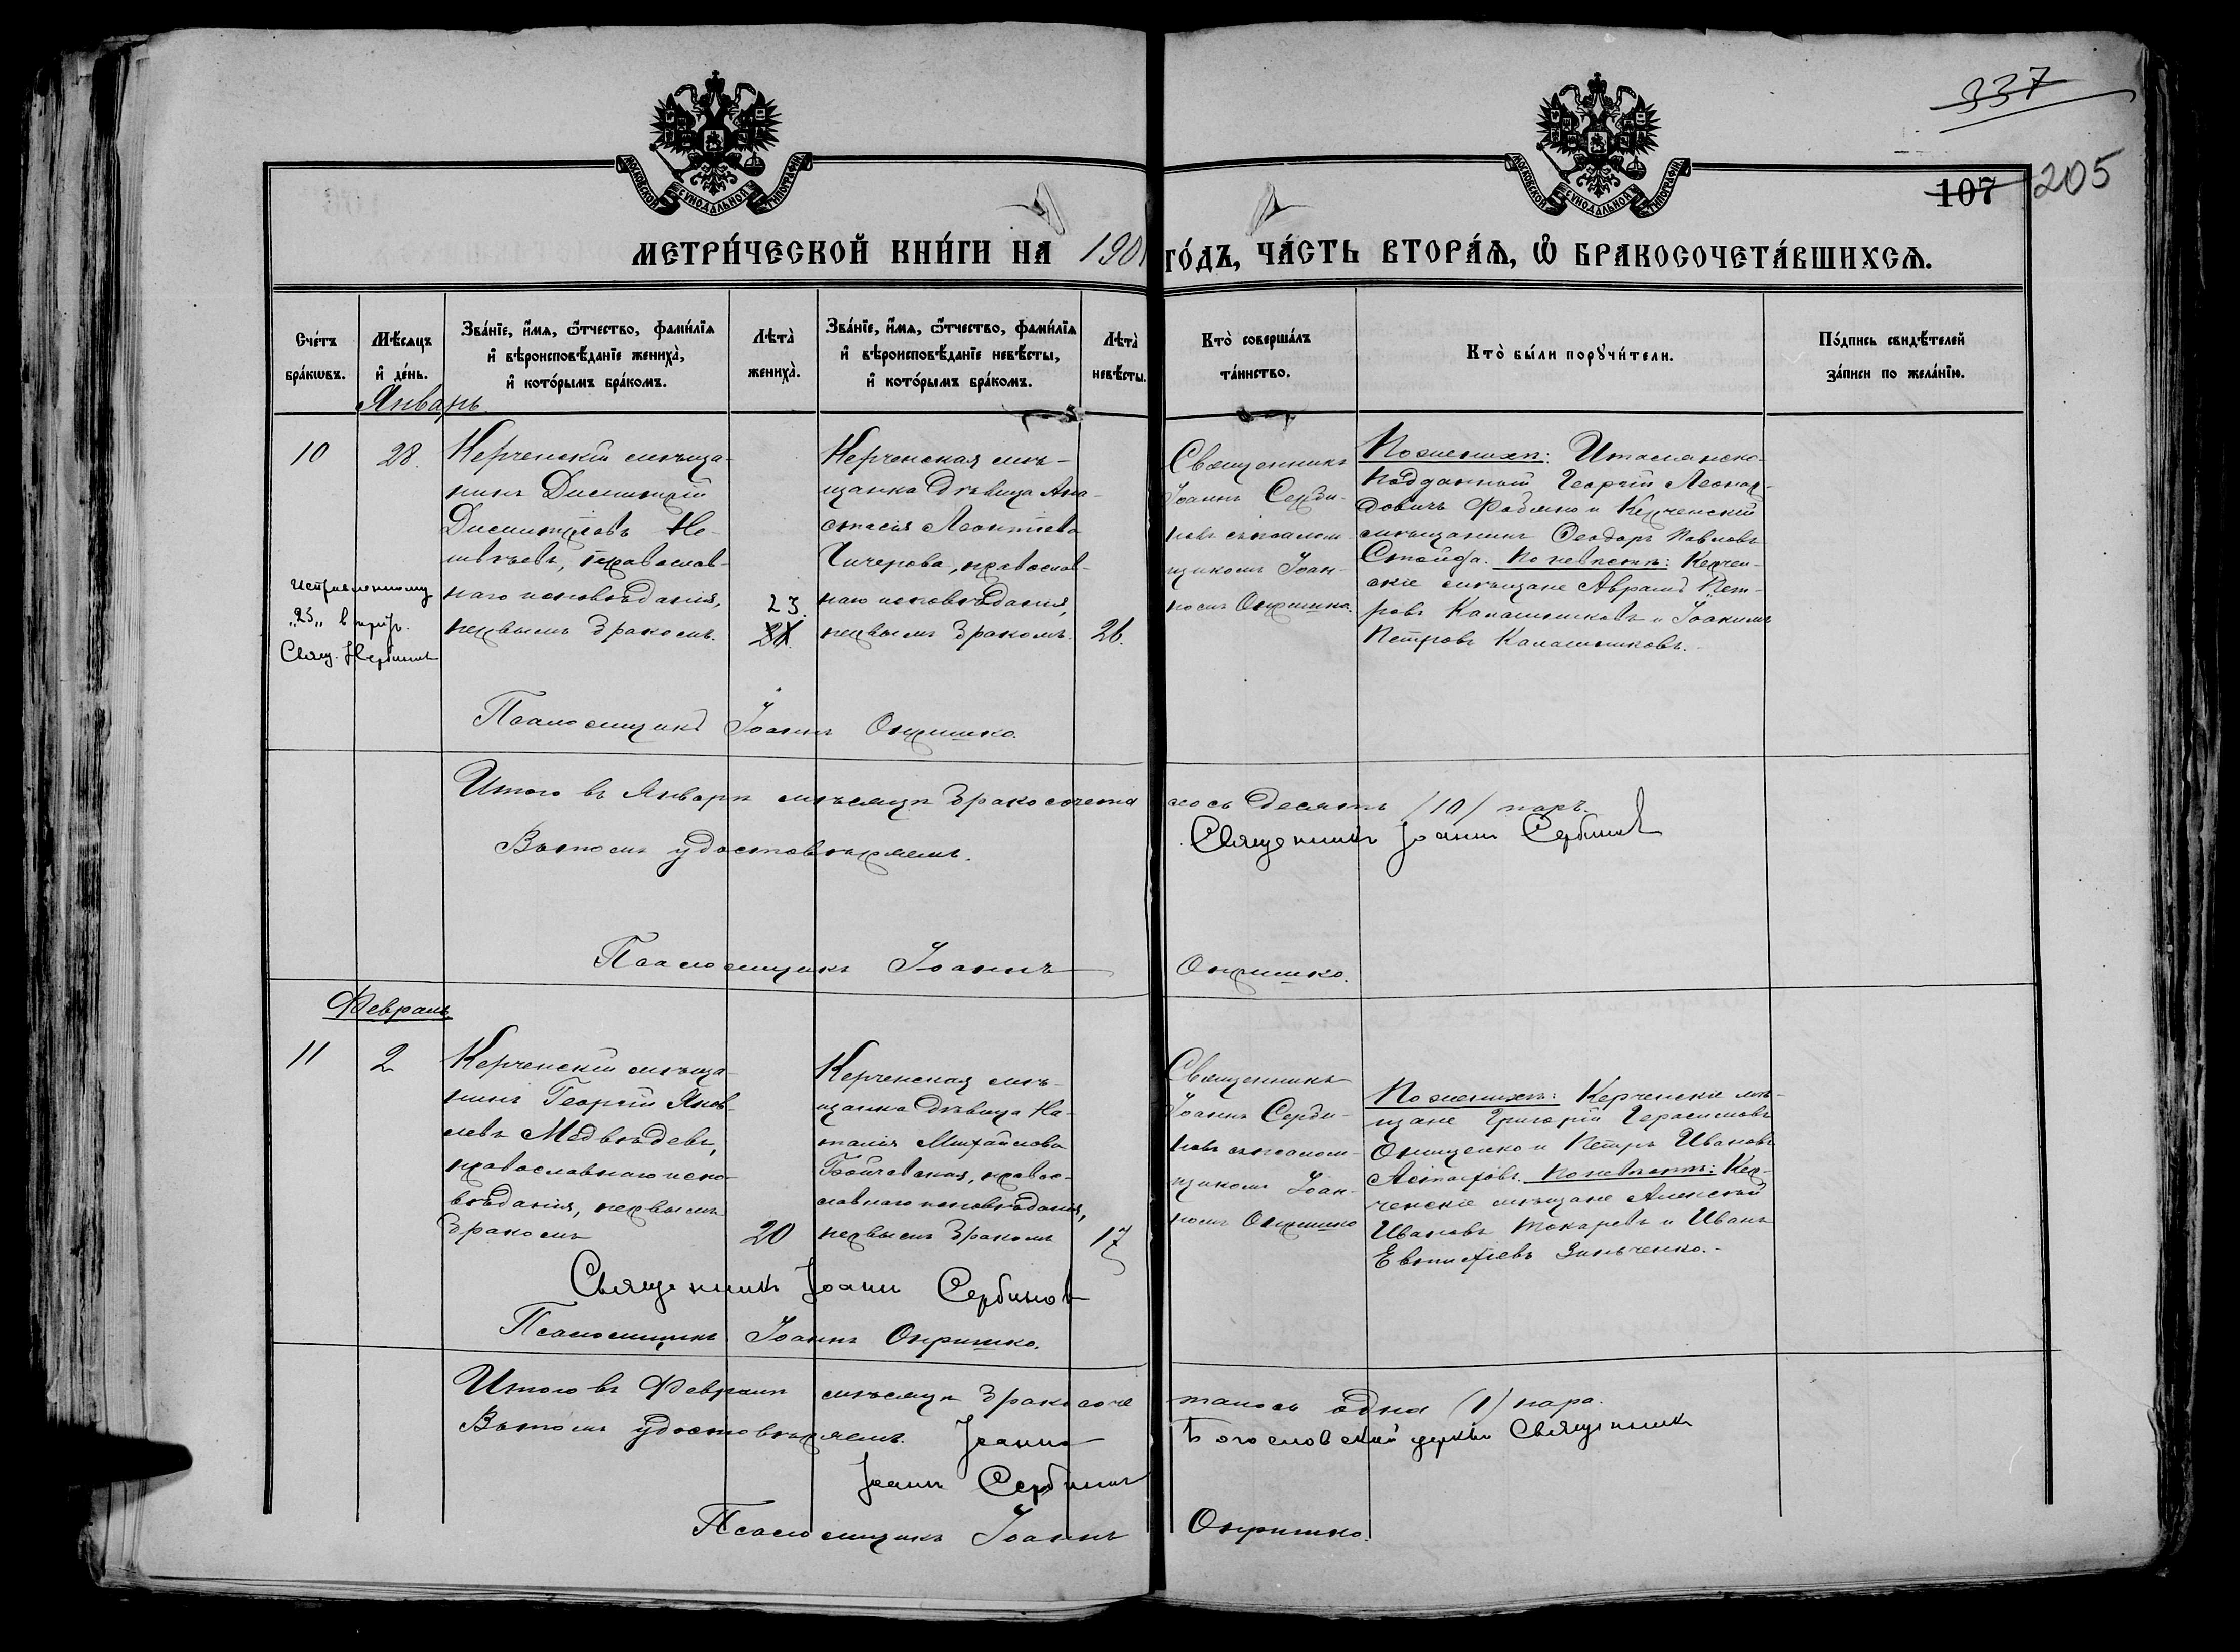 337
107 205
МОСКОВСКОЙ СѴНОДАЛЬНОЙ ТИПОГРАФІИ
МОСКОВСКОЙ СѴНОДАЛЬНОЙ ТИПОГРАФІИ
МЕТРИ́ЧЕСКОЙ КНИ́ГИ НА 1901 ГО́ДЪ, ЧА́СТЬ ВТОРА́Ѧ, Ѡ҆ БРАКОСОЧЕТА́ВШИХСѦ.
Сче́тъ
бра́кѡвъ.
Мѣ́сѧцъ
и҆ де́нь.
Зва́нїе, и҆́мѧ, ѻ҆́тчество, фамі́лїѧ
и҆ вѣроисповѣ́данїе жениха̀,
и҆ кото́рымъ бра́комъ.
Лѣта̀
жениха̀.
Зва́нїе, и҆́мѧ, ѻ҆́тчество, фамі́лїѧ
и҆ вѣроисповѣ́данїе невѣ́сты,
и҆ кото́рымъ бра́комъ.
Лѣта̀
невѣ́сты.
Кто̀ соверша́лъ
та́инство.
Кто̀ бы́ли порꙋчи́тели.
По́дпись свидѣ́телей
за́писи по жела́нїю.
Январь.
10
28.
Керченскій мѣща-
нинъ Димитрій
Димитріевъ Не-
православ-
наго исповѣданія,
первымъ бракомъ.
23.
Исправленному
„23„ вѣрить.
Свящ. Сербиновъ
Керченская мѣ-
щанка дѣвица Ана-
стасія Леонтіева
Чичерова, православ-
наго исповѣданія,
первымъ бракомъ.
26.
Священникъ
Іоаннъ Серби-
новъ съ псалом-
щикомъ Іоан-
номъ Опришко.
По женихѣ: Италіанско-
подданный Георгій Леонар-
довичъ Фабіано и Керченскій
мѣщанинъ Ѳеодоръ Павловъ
По невѣстѣ: Керчен-
скіе мѣщане Авраамъ Пет-
ровъ Калашниковъ и Іоакимъ
Петровъ Калашниковъ.
Псаломщикъ Іоаннъ Опришко.
Итого въ Январѣ мѣсяцѣ бракосочета лось десять /10/ паръ.
Въ томъ удостовѣряемъ. Священникъ Іоаннъ Сербиновъ
Псаломщикъ Іоаннъ Опришко.
Февраль
11
2
Керченскій мѣща-
нинъ Георгій Яков-
левъ Медвѣдевъ,
православнаго испо-
вѣданія, первымъ
бракомъ
20
Керченская мѣ-
щанка дѣвица На-
талія Михайлова
Бойчевская, право-
славнаго исповѣданія,
первымъ бракомъ
17
Священникъ
Іоаннъ Серби-
новъ съ псалом-
щикомъ Іоан-
номъ Опришко
По женихѣ: Керченскіе мѣ-
щане Григорій Герасимовъ
Онищенко и Петръ Ивановъ
Астаховъ. По невѣстѣ: Кер-
ченскіе мѣщане Алексѣй
Ивановъ Токаревъ и Иванъ
Евтихіевъ Зинченко.
Священникъ Іоаннъ Сербиновъ
Псаломщикъ Іоаннъ Опришко.
Итого въ Февралѣ мѣсяцѣ бракосоче талось одна (1) пара.
Въ томъ удостовѣряемъ. Іоанно Богословской церкви Священникъ
Іоаннъ Сербиновъ
Псаломщикъ Іоаннъ Опришко.